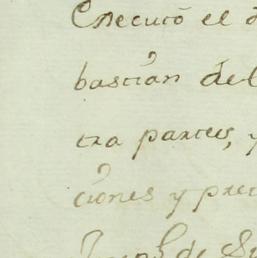 Executó el d
bastian del
tra partes, y
ciones y pre
Jph de S